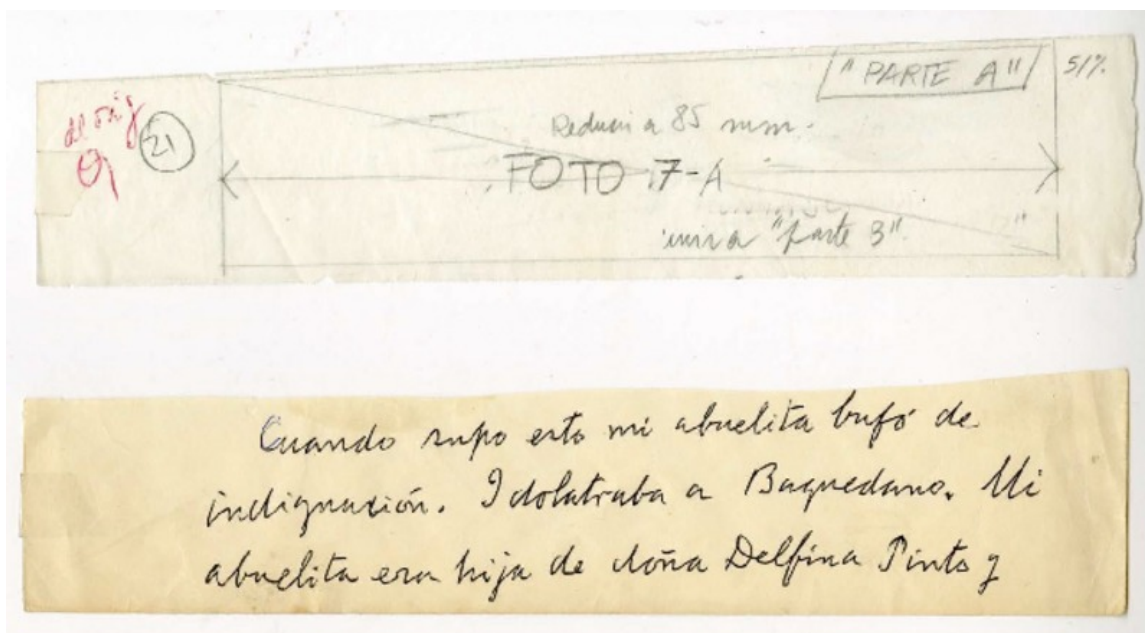 "PARTE A"
51%
21
Reducir a 85 mm.
FOTO 17-A
unir a "parte B"
Cuando supo esto mi abuelita bufó de
indignación. Idolatraba a Baquedano. Mi
abuelita era hija de doña Delfina Pinto y